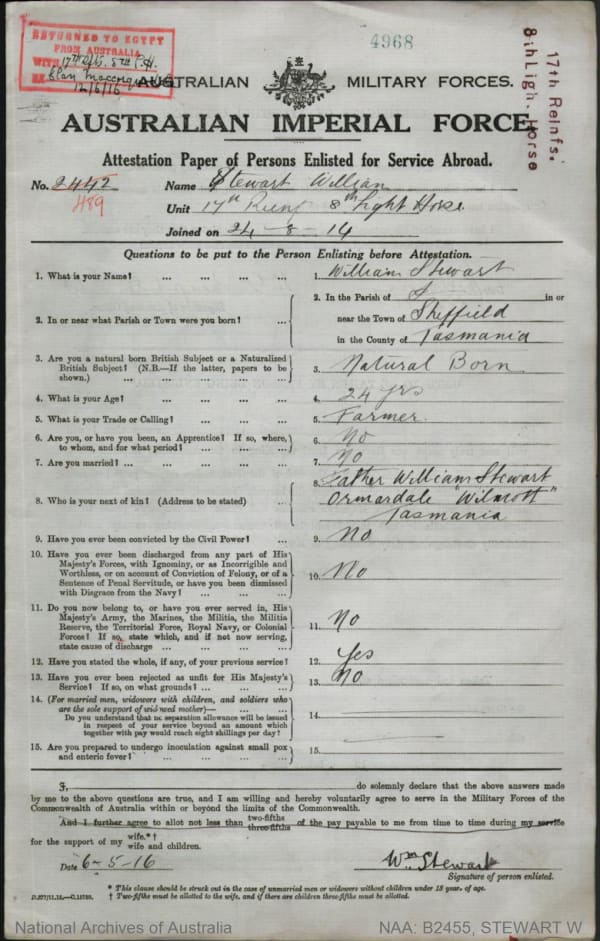 4968
RETURNED TO EGYPT
FROM AUSTRALIA
WITH 17th Rfts. 8TH L.H.
Clan Maccorquodale
12/5/16
17th Reinfs.
8th Ligh. Horse
AUSTRALIAN MILITARY FORCES.
AUSTRALIAN IMPERIAL FORCE
Attestation Paper of Persons Enlisted for Service Abroad.
No. 2442 Name Stewart William
489
Unit 17th Reinf 8th Light Horse
Joined on 24-8-14
Questions to be put to the Person Enlisting before Attestation.
1. What is your Name? ... ... ... ... 1. William Stewart
2. In or near what Parish or Town were you born? ... 2. In the Parish of in or
near the Town of Sheffield
in the County of Tasmania
3. Are you a natural born British Subject or a Naturalized
British Subject? (N.B.—If the latter, papers to be
shown.) ... ... ... ... 3. Natural Born
4. What is your Age? ... ... ... ... 4. 24 yrs
5. What is your Trade or Calling? ... ... ... 5. Farmer.
6. Are you, or have you been, an Apprentice? If so, where,
to whom, and for what period? ... ... ... 6. No
7. Are you married? ... ... ... ... ... 7. No
8. Who is your next of kin? (Address to be stated) ... 8. Father William Stewart
Ormardale "Wilmott"
Tasmania
9. Have you ever been convicted by the Civil Power? ... 9. No
10. Have you ever been discharged from any part of His
Majesty's Forces, with Ignominy, or as Incorrigible and
Worthless, or on account of Conviction of Felony, or of a
Sentence of Penal Servitude, or have you been dismissed
with Disgrace from the Navy? ... ... ... 10. No
11. Do you now belong to, or have you ever served in, His
Majesty's Army, the Marines, the Militia, the Militia
Reserve, the Territorial Force, Royal Navy, or Colonial
Forces? If so, state which, and if not now serving,
state cause of discharge ... ... ... 11. No
12. Have you stated the whole, if any, of your previous service? 12. Yes
13. Have you ever been rejected as unfit for His Majesty's
Service? If so, on what grounds? ... ... ... 13. No
14. (For married men, widowers with children, and soldiers who
are the sole support of widowed mother)—
Do you understand that no separation allowance will be issued
in respect of your service beyond an amount which
together with pay would reach eight shillings per day? 14.
15. Are you prepared to undergo inoculation against small pox
and enteric fever? ... ... ... ... 15.
I, do solemnly declare that the above answers made
by me to the above questions are true, and I am willing and hereby voluntarily agree to serve in the Military Forces of the
Commonwealth of Australia within or beyond the limits of the Commonwealth.
And I further agree to allot not less than two-fifths three-fifths of the pay payable to me from time to time during my service
for the support of my wife.*† wife and children.
Date 6-5-16 Wm Stewart
Signature of person enlisted.
* This clause should be struck out in the case of unmarried men or widowers without children under 18 years of age.
† Two-fifths must be allotted to the wife, and if there are children three-fifths must be allotted.
National Archives of Australia NAA: B2455, STEWART W